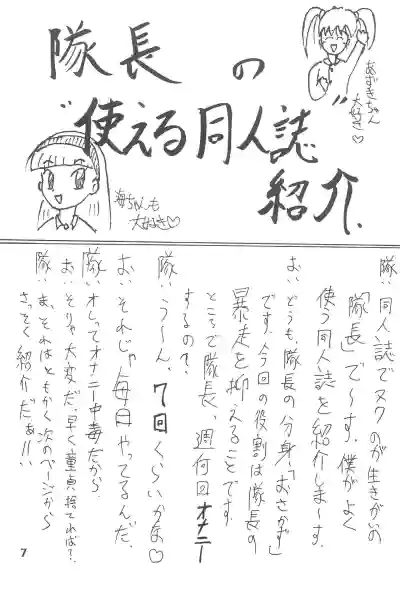 隊長の
"使える同人誌"
紹介.
あずきちゃん
大好き♡
海ちゃんも
大好き♡
隊:同人誌でヌクのが生きがいの
「隊長」で〜す。僕がよく
使う同人誌を紹介しま〜す。
お:どうも、隊長の分身「おさかず」
です。今回の役割は隊長の
暴走を抑えることです。
ところで隊長、週何回オナニー
するの?
隊:う〜ん、7回くらいかな♡
お:それじゃ毎日やってるんだ。
隊:オレってオナニー中毒だから。
お:そりゃ大変だ。早く童貞捨てれば?
隊:ま、それはともかく次のページから
さっそく紹介だぁ!!
7